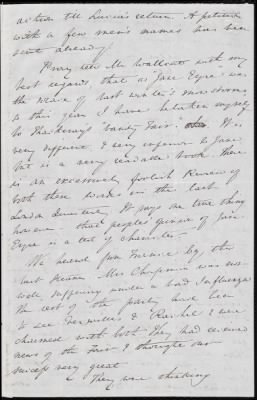 action till Lucia's return. A petition
with a few men's names has been
sent already.
Pray tell Mr Wallcut with my
best regards, that as Jane Eyre was
the of last winter's
so this year I have betaken myself
to Thackeray's "Vanity Fair." It is
very different, & very inferior to Jane
but is a very readable book. There
is an excessively foolish Review of
both these works in the last
London Quarterly. It says one true thing
however that people's opinion of Jane
Eyre is a test of character.
We heard from France by the
last Steamer Mrs Chapman was un-
well, suffering under a bad Influenza
the rest of the party have been
to see Versailles & Rachel & were
charmed with both. They had received
news of the Fair & thought our
success very great
They were thinking